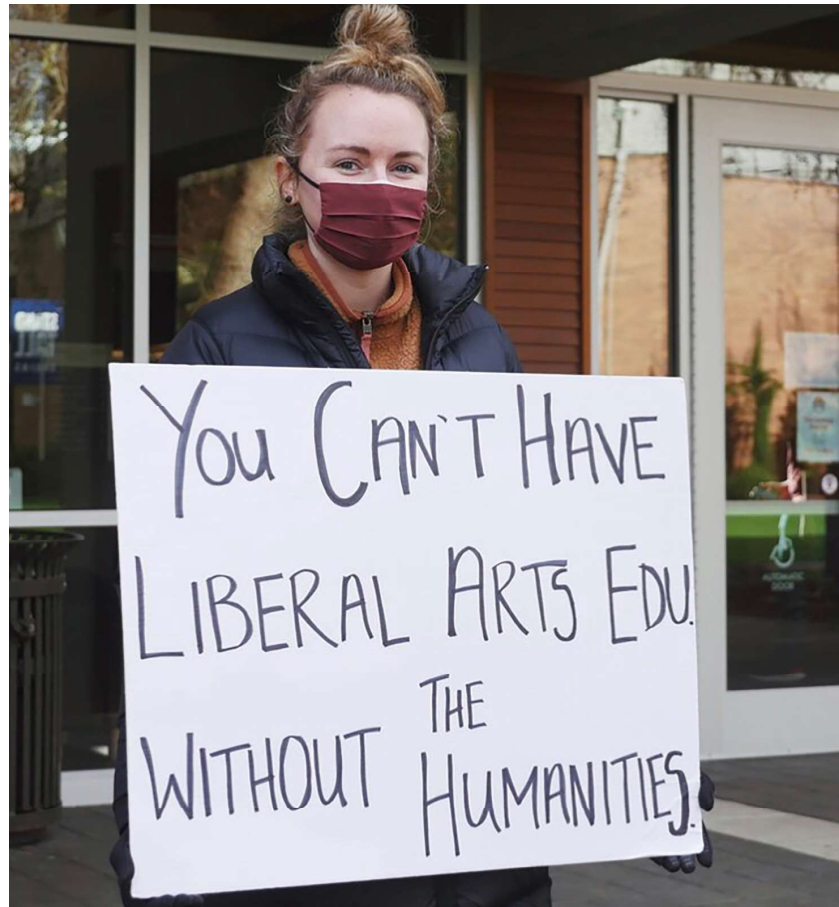 YOU CAN'T HAVE
LIBERAL ARTS EDU.
WITHOUT THE
HUMANITIES.
AUTOMATIC
DOOR